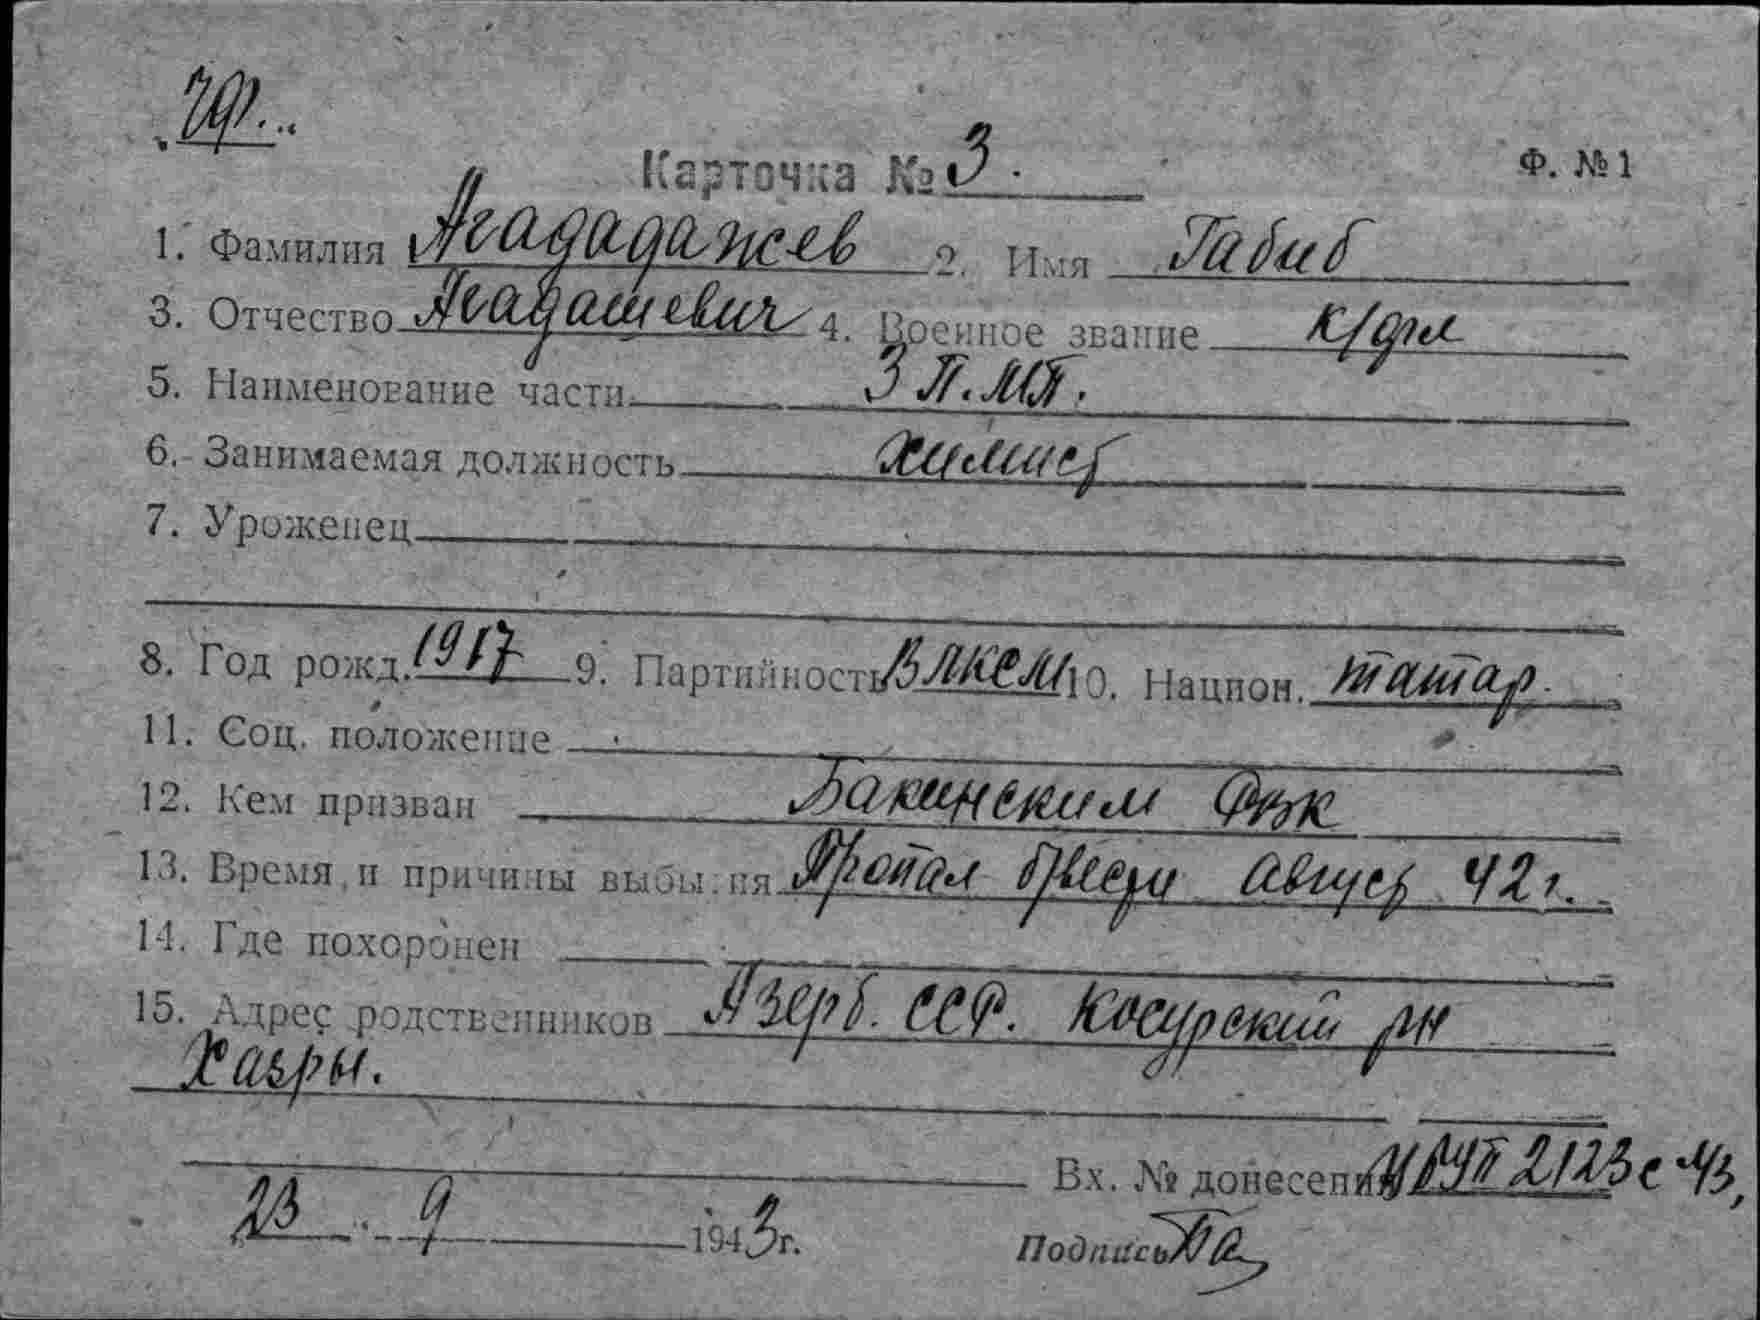 Карточка № 3. Ф. № 1
1. Фамилия Агададажев 2. Имя Габиб
3. Отчество Агадашевич 4. Военное звание к/фл
5. Наименование части 3 П.МП.
6. Занимаемая должность химист
7. Уроженец
8. Год рожд. 1917 9. Партийность ВЛКСМ 10. Национ. татар.
11. Соц. положение
12. Кем призван Бакинским ФВК
13. Время и причины выбытия Пропал б/вести август 42 г.
14. Где похоронен
15. Адрес родственников Азерб. ССР. Косурский рн
Хазры.
Вх. № донесения 2123с 43,
23 9 1943 г. Подпись